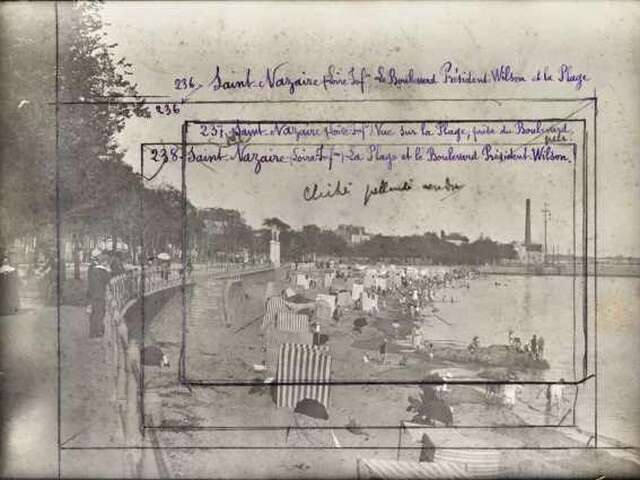 236 - Saint-Nazaire (Loire-Infre) Le Boulevard Président Wilson et la Plage
236
237 - Saint-Nazaire (Loire-Infre) Vue sur la Plage, prise du Boulevard
238 - Saint-Nazaire (Loire-Infre) - La Plage et le Boulevard Président-Wilson.
Cliché